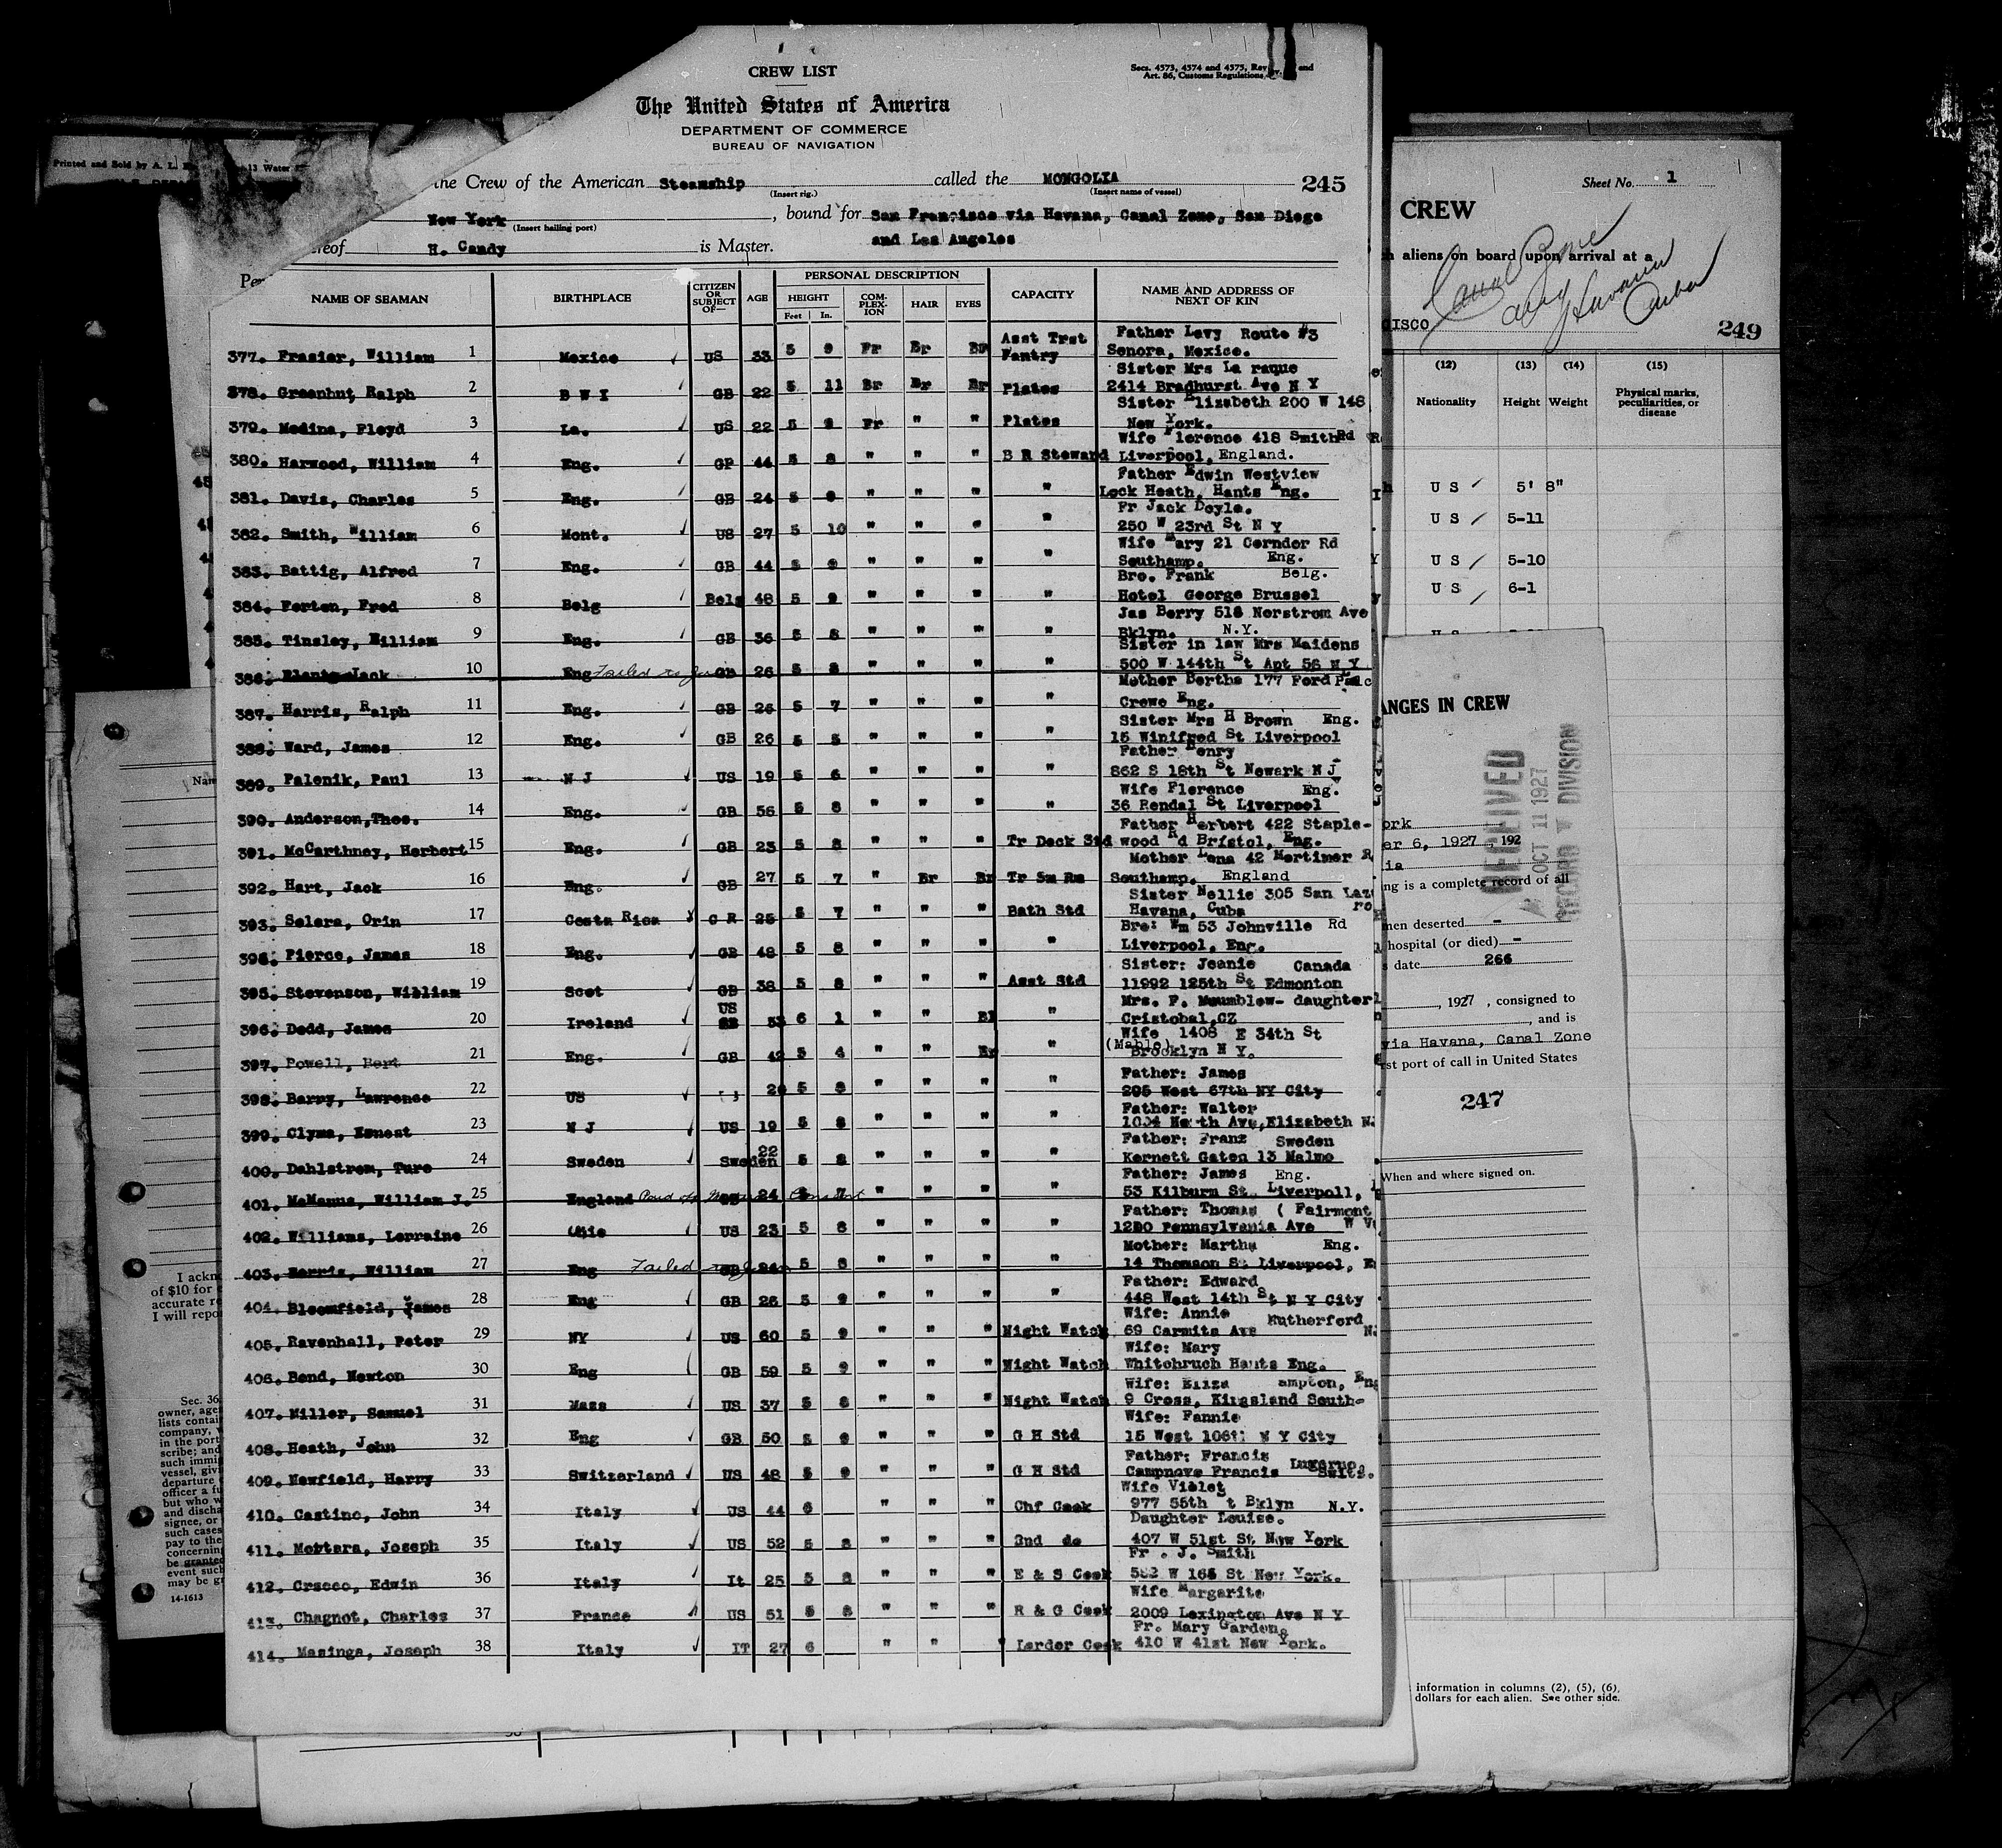 CREW LIST
Secs. 4573, 4574 and 4575, Rev. and
Art. 86, Customs Regulations
The United States of America
DEPARTMENT OF COMMERCE
BUREAU OF NAVIGATION
Printed and Sold by A. L. 13 Water
the Crew of the American Steamship called the MONGOLIA 245
(Insert rig.) (Insert name of vessel)
New York , bound for San Francisco via Havana, Canal Zone, San Diego
(Insert hailing port)
H. Candy is Master. and Los Angeles
NAME OF SEAMAN BIRTHPLACE CITIZEN OR SUBJECT OF— AGE PERSONAL DESCRIPTION CAPACITY NAME AND ADDRESS OF NEXT OF KIN
HEIGHT COM-PLEX-ION HAIR EYES
Feet In.
Father Levy Route #3
377. Frasier, William 1 Mexico US 33 5 9 Fr Br Br Asst Trst Pantry Senora, Mexico.
Sister Mrs La raque
378. Greenhut Ralph 2 B W I GB 22 5 11 Br Br Br Plates 2414 Bradhurst Ave N Y
Sister Elizabeth 200 W 148
379. Medina, Floyd 3 La. US 22 5 9 Fr " " Plates New York.
Wife Florence 418 Smith Rd
380. Harwood, William 4 Eng. GB 44 5 8 " " " B R Steward Liverpool, England.
Father Edwin Westview
381. Davis, Charles 5 Eng. GB 24 5 9 " " " " Lock Heath, Hants Eng.
Fr Jack Doyle.
382. Smith, William 6 Mont. US 27 5 10 " " " " 250 W 23rd St N Y
Wife Mary 21 Cerndor Rd
383. Battig, Alfred 7 Eng. GB 44 5 9 " " " " Southamp. Eng.
Bro. Frank Belg.
384. Ferton, Fred 8 Belg Belg 48 5 9 " " " " Hotel George Brussel
Jas Berry 518 Norstrom Ave
385. Tinsley, William 9 Eng. GB 36 5 8 " " " " Bklyn. N.Y.
Sister in law Mrs Maidens
386. Jack 10 Eng Failed to Join GB 26 5 8 " " " " 500 W 144th St Apt 56 N Y
Mother Bertha 177 Ford
387. Harris, Ralph 11 Eng. GB 26 5 7 " " " " Crewe Eng.
Sister Mrs H Brown Eng.
388. Ward, James 12 Eng. GB 26 5 5 " " " " 15 Winifred St Liverpool
Father Henry
389. Palenik, Paul 13 N J US 19 5 6 " " " " 862 S 18th St Newark N J
Wife Florence Eng.
390. Anderson, Thos. 14 Eng. GB 56 5 8 " " " " 36 Rendal St Liverpool
Father Herbert 422 Staple-
391. McCarthney, Herbert 15 Eng. GB 23 5 8 " " " Tr Deck Std wood Rd Bristol, Eng.
Mother Lena 42 Mortimer R
392. Hart, Jack 16 Eng. GB 27 5 7 " Br Br Tr Sm Rm Southamp. England
Sister Nellie 305 San Laz
ro
393. Solera, Orin 17 Costa Rica C R 25 5 7 " " " Bath Std Havana, Cuba
Bro: Wm 53 Johnville Rd
Pierce, James 18 Eng. GB 48 5 8 " " " " Liverpool, Eng.
Sister: Jeanie Canada
395. Stevenson, William 19 Scot GB 38 5 8 " " " Asst Std 11992 125th St Edmonton
Mrs. F. Moumblow- daughter
396. Dodd, James 20 Ireland US 53 6 1 " " Bl " Cristobal, CZ
Wife 1408 E 34th St
397. Powell, Bert 21 Eng. GB 42 5 4 " " Br " (Mable) Brooklyn N Y.
Father: James
398. Barry, Lawrence 22 US 5 8 " " " " 205 West 67th NY City
Father: Walter
399. Clyma, Ernest 23 N J US 19 5 8 " " " " North Ave, Elizabeth N
Father: Franz Sweden
400. Dahlstrom, Ture 24 Sweden Sweden 22 5 8 " " " " Kernett Gaten 13 Malmo
Father: James Eng.
401. McManus, William J. 25 England Paid off Consent 24 5 7 " " " " 53 Kilburn St. Liverpoll,
Father: Thomas ( Fairmont
402. Williams, Lorraine 26 Ohio US 23 5 8 " " " " Pennsylvania Ave W V
Mother: Martha Eng.
403. William 27 Eng Failed to Join GB 5 8 " " " " 14 Thomson St Liverpool,
Father: Edward
404. Bloomfield, James 28 Eng GB 26 5 9 " " " " 448 West 14th St N Y City
Wife: Annie Rutherford
405. Ravenhall, Peter 29 NY US 60 5 9 " " " Night Watch 69 Carmita Ave N
Wife: Mary
406. Bond, Newton 30 Eng GB 59 5 9 " " " Night Watch Whitchruch Hants Eng.
Wife: Eliza ampton, Eng
407. Miller, Samuel 31 Mass US 37 5 8 " " " Night Watch 9 Cross, Kingsland South-
Wife: Fannie
408. Heath, John 32 Eng GB 50 5 9 " " " G H Std 15 West 106th N Y City
Father: Francis
409. Newfield, Harry 33 Switzerland US 48 5 9 " " " G H Std Campnove Francis Lugerno Switz.
Wife Violet
410. Castino, John 34 Italy US 44 6 " " " Chf Cook 977 55th t Bklyn N.Y.
Daughter Louise.
411. Mortara, Joseph 35 Italy US 52 5 8 " " " 2nd do 407 W 51st St New York
Fr . J. Smith
412. Crasco, Edwin 36 Italy It 25 5 8 " " " E & S Cook W 165 St New York.
Wife Margarite
413. Chagnot, Charles 37 France US 51 5 8 " " " R & G Cook 2009 Lexington Ave N Y
Fr. Mary Garden.
414. Masinga, Joseph 38 Italy IT 27 6 " " " Larder Cook 410 W 41st New York.
Sheet No. 1
CREW
aliens on board upon arrival at a
Canal Zone
and Havana
Cuba
CISCO
249
(12) (13) (14) (15)
Nationality Height Weight Physical marks, peculiarities, or disease
U S 5' 8"
U S 5-11
U S 5-10
U S 6-1
ANGES IN CREW
RECEIVED
OCT 11 1927
RECORD DIVISION
ork
er 6, 1927 , 192
ia
ng is a complete record of all
men deserted -
hospital (or died) -
s date 266
, 1927 , consigned to
, and is
via Havana, Canal Zone
rst port of call in United States
247
When and where signed on.
information in columns (2), (5), (6),
dollars for each alien. See other side.
Nam
I ackn
of $10 for
accurate re
I will repo
Sec. 36
owner, age
lists contai
company,
in the port
scribe; and
such immi
vessel, givi
departure
officer a fu
but who w
and discha
signee, or
such cases
pay to the
concerning
be granted
event such
may be gr
14-1613